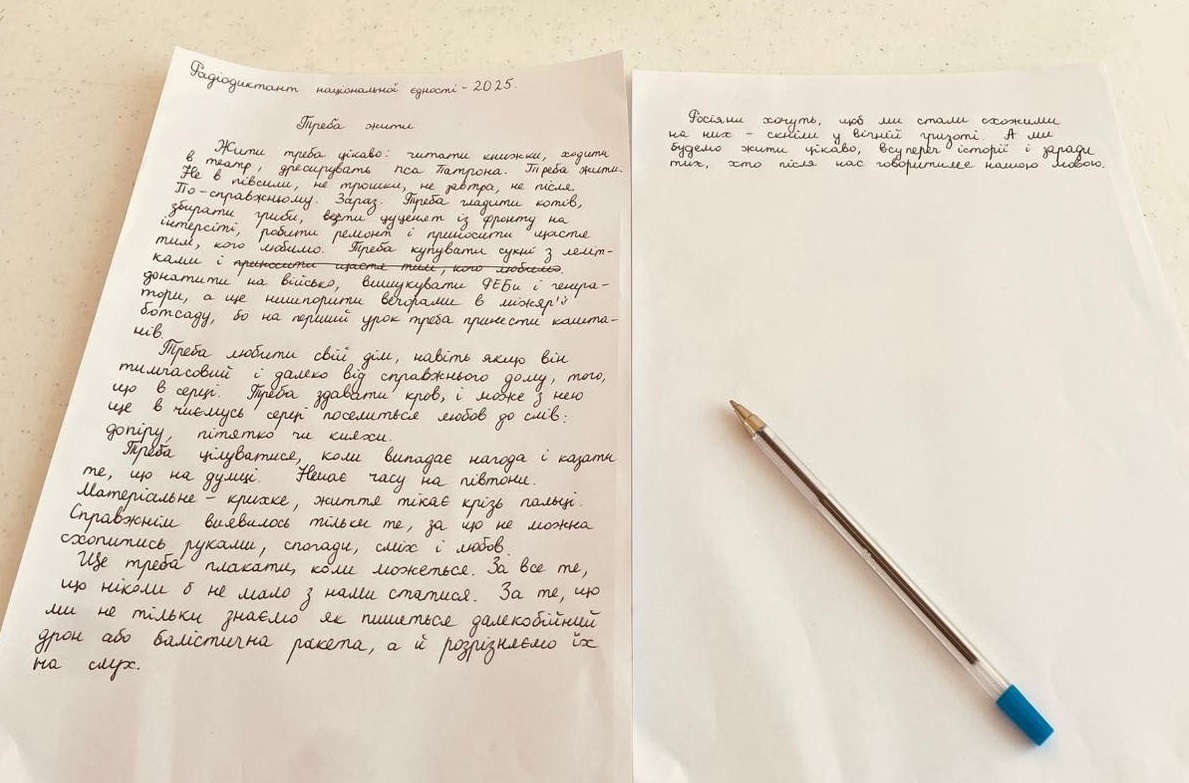 Радіодиктант національної єдності - 2025.
Треба жити
Жити треба цікаво: читати книжки, ходити
в театр, дресирувать пса Патрона. Треба жити.
Не в півсили, не трошки, не завтра, не після.
По-справжньому. Зараз. Треба гладити котів,
збирати гриби, везти цуценят із фронту на
інтерсіті, робити ремонт і приносити щастя
тим, кого любимо. Треба купувати сукні з леліт-
ками і приносити щастя тим, кого любимо
донатити на військо, вишукувати ФЕБи і генера-
тори, а ще нишпорити вечорами в міжяр'ї
ботсаду, бо на перший урок треба принести кашта-
нів.
Треба любити свій дім, навіть якщо він
тимчасовий і далеко від справжнього дому, того,
що в серці. Треба здавати кров, і може з нею
ще в чиємусь серці поселиться любов до слів:
допіру, пітятко чи кияхи.
Треба цілуватися, коли випадає нагода і казати
те, що на думці. Немає часу на півтони.
Матеріальне - крихке, життя тікає крізь пальці.
Справжнім виявилось тільки те, за що не можна
схопитись руками, спогади, сміх і любов.
Ще треба плакати, коли можеться. За все те,
що ніколи б не мало з нами статися. За те, що
ми не тільки знаємо як пишеться далекобійний
дрон або балістична ракета, а й розрізняємо їх
на слух.
Росіяни хочуть, щоб ми стали схожими
на них - скніли у вічній гризоті. А ми
будемо жити цікаво, всупереч історії і заради
тих, хто після нас говоритиме нашою мовою.